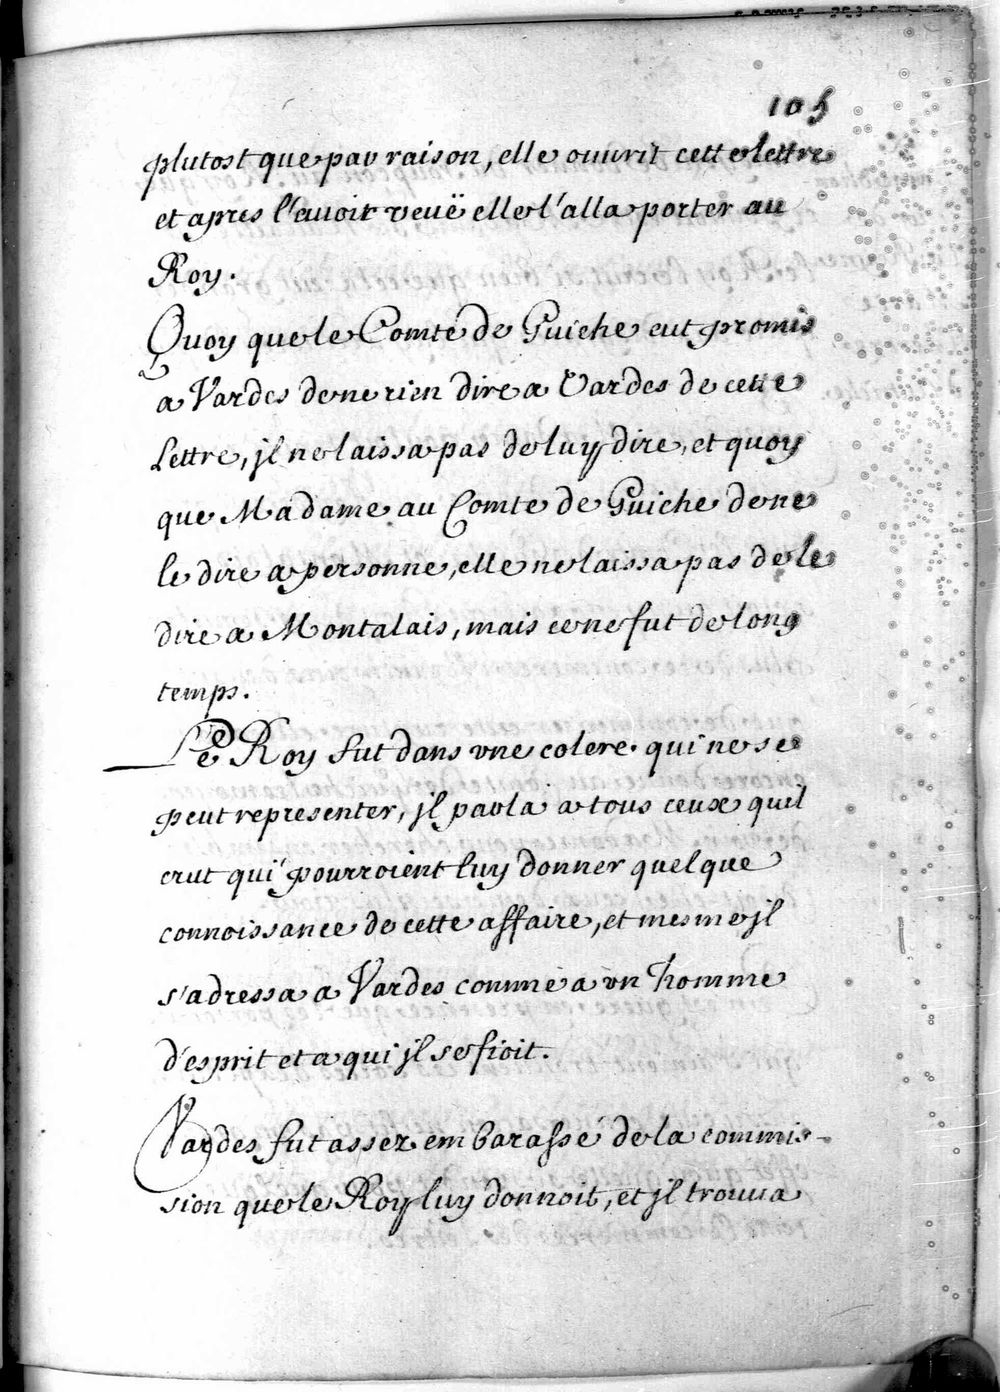 105
plutost que par raison, elle ouurit cette lettre
et apres l'auoir veuë elle l'alla porter au
Roy.
Quoy que le Comte de Guiche eut promis
a Vardes de ne rien dire a Vardes de cette
Lettre, jl ne laissa pas de luy dire, et quoy
que Madame au Comte de Guiche de ne
le dire a personne, elle ne laissa pas de le
dire a Montalais, mais ce ne fut de long
temps.
Le Roy fut dans vne colere qui ne se
peut representer, jl parla a tous ceux quil
crut qui pourroient luy donner quelque
connoissance de cette affaire, et mesme jl
s'adressa a Vardes comme a vn homme
d'esprit et a qui jl se fioit.
Vardes fut assez embarassé de la commis-
sion que le Roy luy donnoit, et jl trouua